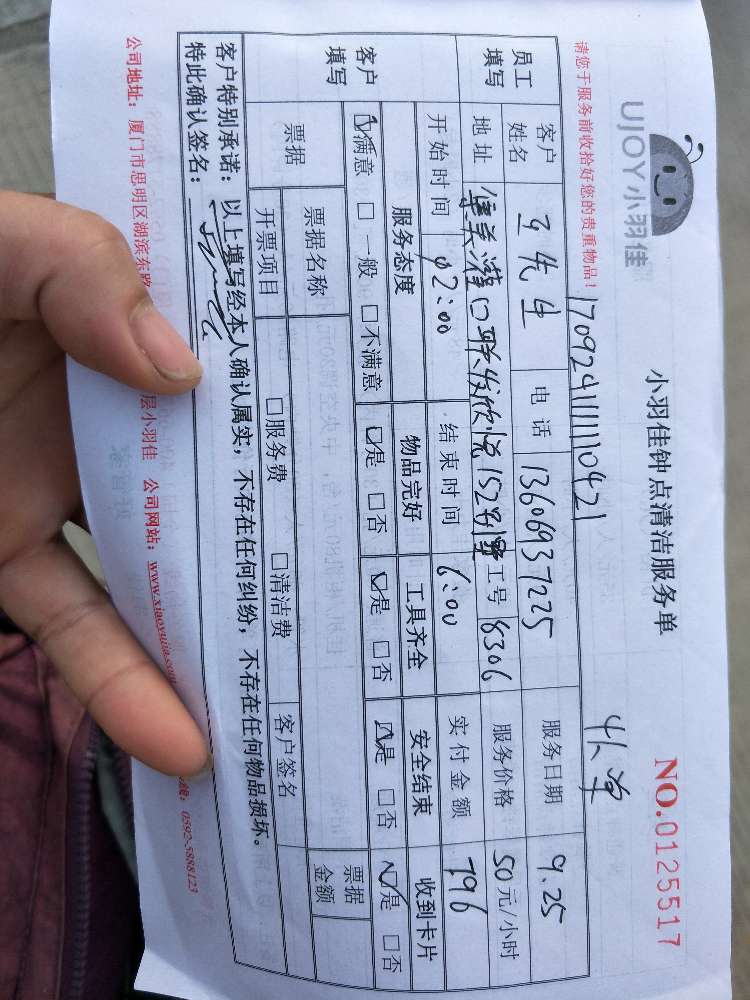 UJOY小羽佳
小羽佳钟点清洁服务单
NO.0125517
请您于服务前收拾好您的贵重物品!
170924111110421
4人单
员工填写
客户姓名 王先生 电话 13606937225 服务日期 9.25
地址 集美灌口联发欣悦152 工号 8306 服务价格 50元/小时
客户填写
开始时间 02:00 结束时间 6:00 实付金额 796
服务态度 物品完好 工具齐全 安全结束 收到卡片
☑满意 □一般 □不满意 ☑是 □否 ☑是 □否 ☑是 □否 ☑是 □否
票据 票据名称 票据金额
开票项目 □服务费 □清洁费 客户签名
客户特别承诺:以上填写经本人确认属实,不存在任何纠纷,不存在任何物品损坏。
特此确认签名:
公司地址:厦门市思明区湖滨东路 层小羽佳 公司网站:www.xiaoyujia.com 0592-5888123